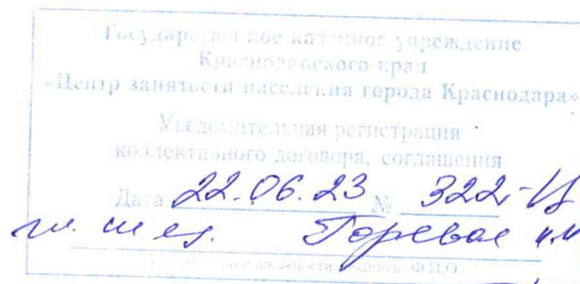 Государственное казенное учреждение
Краснодарского края
«Центр занятости населения города Краснодара»
Уведомительная регистрация
коллективного договора, соглашения
Дата 22.06.23 № 322-Ц
Горевая
Ф.И.О.